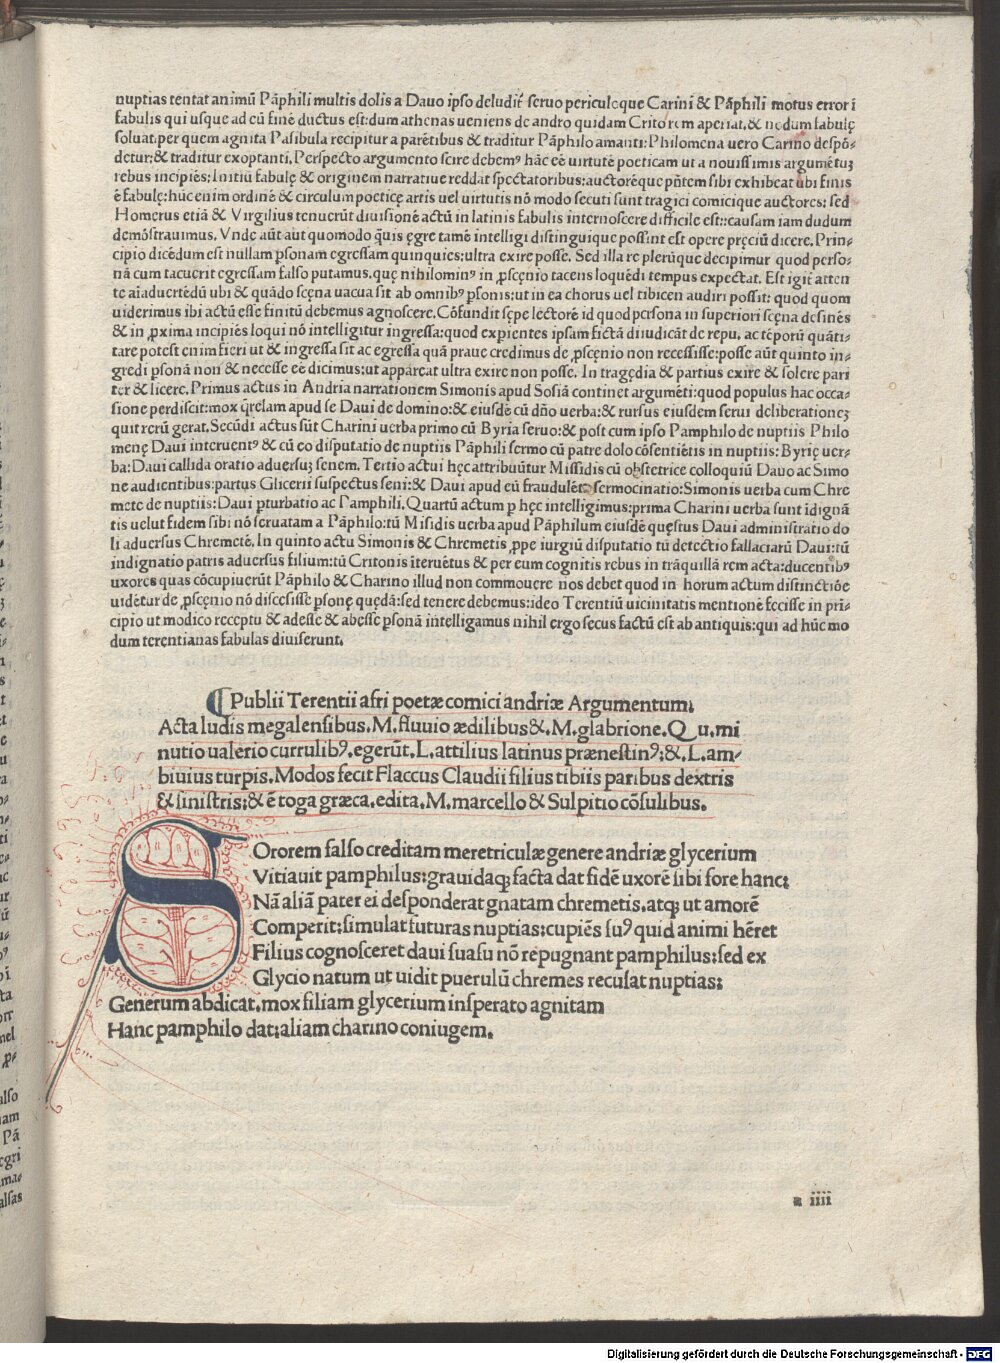 nuptias tentat animū Pāphili multis dolis a Dauo ipso deludit̄ seruo periculoque Carini & Pāphili motus error ī
fabulis qui usque ad eū finē ductus est:dum athenas ueniens de andro quidam Crito rem aperiat.& nodum fabulę
soluat.per quem agnita Pasibula recipitur a parētibus & traditur Pāphilo amanti:Philomena uero Carino despō-
detur:& traditur exoptanti. Perspecto argumento scire debemꝰ hāc eē uirtutē poeticam ut a nouissimis argumētuꝫ
rebus incipiēs:Initiū fabulę & originem narratiue reddat spectatoribus:auctorēque pn̄tem sibi exhibeat ubi finis
ē fabulę:huic enim ordinē & circulum poeticę artis uel uirtutis nō modo secuti sunt tragici comicique auctores: sed
Homerus etiā & Virgilius tenuerūt diuisionē actū in latinis fabulis internoscere difficile est::causam iam dudum
demōstrauimus. Vnde aūt aut quomodo q̄uis ęgre tamē intelligi distinguique possint est opere pręciū dicere. Prin-
cipio dicēdum est nullam ꝑsonam egressam quinquies:ultra exire posse. Sed illa re plerūque decipimur quod perso-
nā cum tacuerit egressam falso putamus.quę nihilominꝰ in ꝓscęnio tacens loquēdi tempus expectat. Est igit̄ atten
te aīaduertēdū ubi & quādo scęna uacua sit ab omnibꝰ ꝑsonis:ut in ea chorus uel tibicen audiri possit: quod quom
uiderimus ibi actū esse finitū debemus agnoscere. Cōfundit sępe lectorē id quod persona in superiori scęna desinēs
& in ꝓxima incipiēs loqui nō intelligitur ingressa:quod expientes ipsam fictā diiudicāt de repu. ac tēporū quāti-
tare potest enim fieri ut & ingressa sit ac egressa quā praue credimus de ꝓscęnio non recessisse:posse aūt quinto in-
gredi ꝑsonā non & necesse eē dicimus:ut appareat ultra exire non posse. In tragędia & partius exire & solere pari
ter & licere. Primus actus in Andria narrationem Simonis apud Sosiā continet argumēti:quod populus hac occa-
sione perdiscit:mox q̄relam apud se Daui de domino:& eiusdē cū dn̄o uerba:& rursus eiusdem serui deliberationeꝫ
quit rerū gerat. Secūdi actus sūt Charini uerba primo cū Byria seruo:& post cum ipso Pamphilo de nuptiis Philo
menę Daui interuentꝰ & cū eo disputatio de nuptiis Pāphili sermo cū patre dolo cōsentiētis in nuptiis: Byrię uer-
ba:Daui callida oratio aduersuꝫ senem. Tertio actui hęc attribuūtur Missidis cū obstetrice colloquiū Dauo ac Simo
ne audientibus:partus Glicerii suspectus seni:& Daui apud eū fraudulēta sermocinatio:Simonis uerba cum Chre
mete de nuptiis:Daui ꝑturbatio ac Pamphili. Quartū actum ꝑ hęc intelligimus:prima Charini uerba sunt idignā
tis uelut fidem sibi nō seruatam a Pāphilo:tū Misidis uerba apud Pāphilum eiusdē quęstus Daui administratio do
li aduersus Chremetē. In quinto actu Simonis & Chremetis ꝓpe iurgiū disputatio tū detectio fallaciarū Daui:tū
indignatio patris aduersus filium:tū Critonis iteruētus & per eum cognitis rebus in trāquillā rem acta:ducentibꝰ
uxores quas cōcupiuerūt Pāphilo & Charino illud non commouere nos debet quod in horum actum distinctiōe
uidētur de ꝓscęnio nō discesisse ꝑsonę quędā:sed tenere debemus:ideo Terentiū uicinitatis mentionē fecisse in pri-
cipio ut modico receptu & adesse & abesse ꝑsonā intelligamus nihil ergo secus factū est ab antiquis:qui ad hūc mo
dum terentianas fabulas diuiserunt.
¶ Publii Terentii afri poetæ comici andriæ Argumentum.
Acta ludis megalensibus. M. fluuio ædilibus &. M. glabrione. Q u. mi
nutio ualerio currulibꝰ. egerūt. L. attilius latinus prænestinꝰ:&. L. am-
biuius turpis. Modos fecit Flaccus Claudii filius tibiis paribus dextris
& sinistris:& ē toga græca. edita. M. marcello & Sulpitio cōsulibus.
Sororem falso creditam meretriculæ genere andriæ glycerium
Vitiauit pamphilus:grauidaqꝫ facta dat fidē uxorē sibi fore hanc:
Nā aliā pater ei desponderat gnatam chremetis. atqꝫ ut amorē
Comperit:simulat futuras nuptias:cupiēs suꝰ quid animi hēret
Filius cognosceret daui suasu nō repugnant pamphilus:sed ex
Glycio natum ut uidit puerulū chremes recusat nuptias:
Generum abdicat. mox filiam glycerium insperato agnitam
Hanc pamphilo dat:aliam charino coniugem.
a iiii
Digitalisierung gefördert durch die Deutsche Forschungsgemeinschaft - DFG